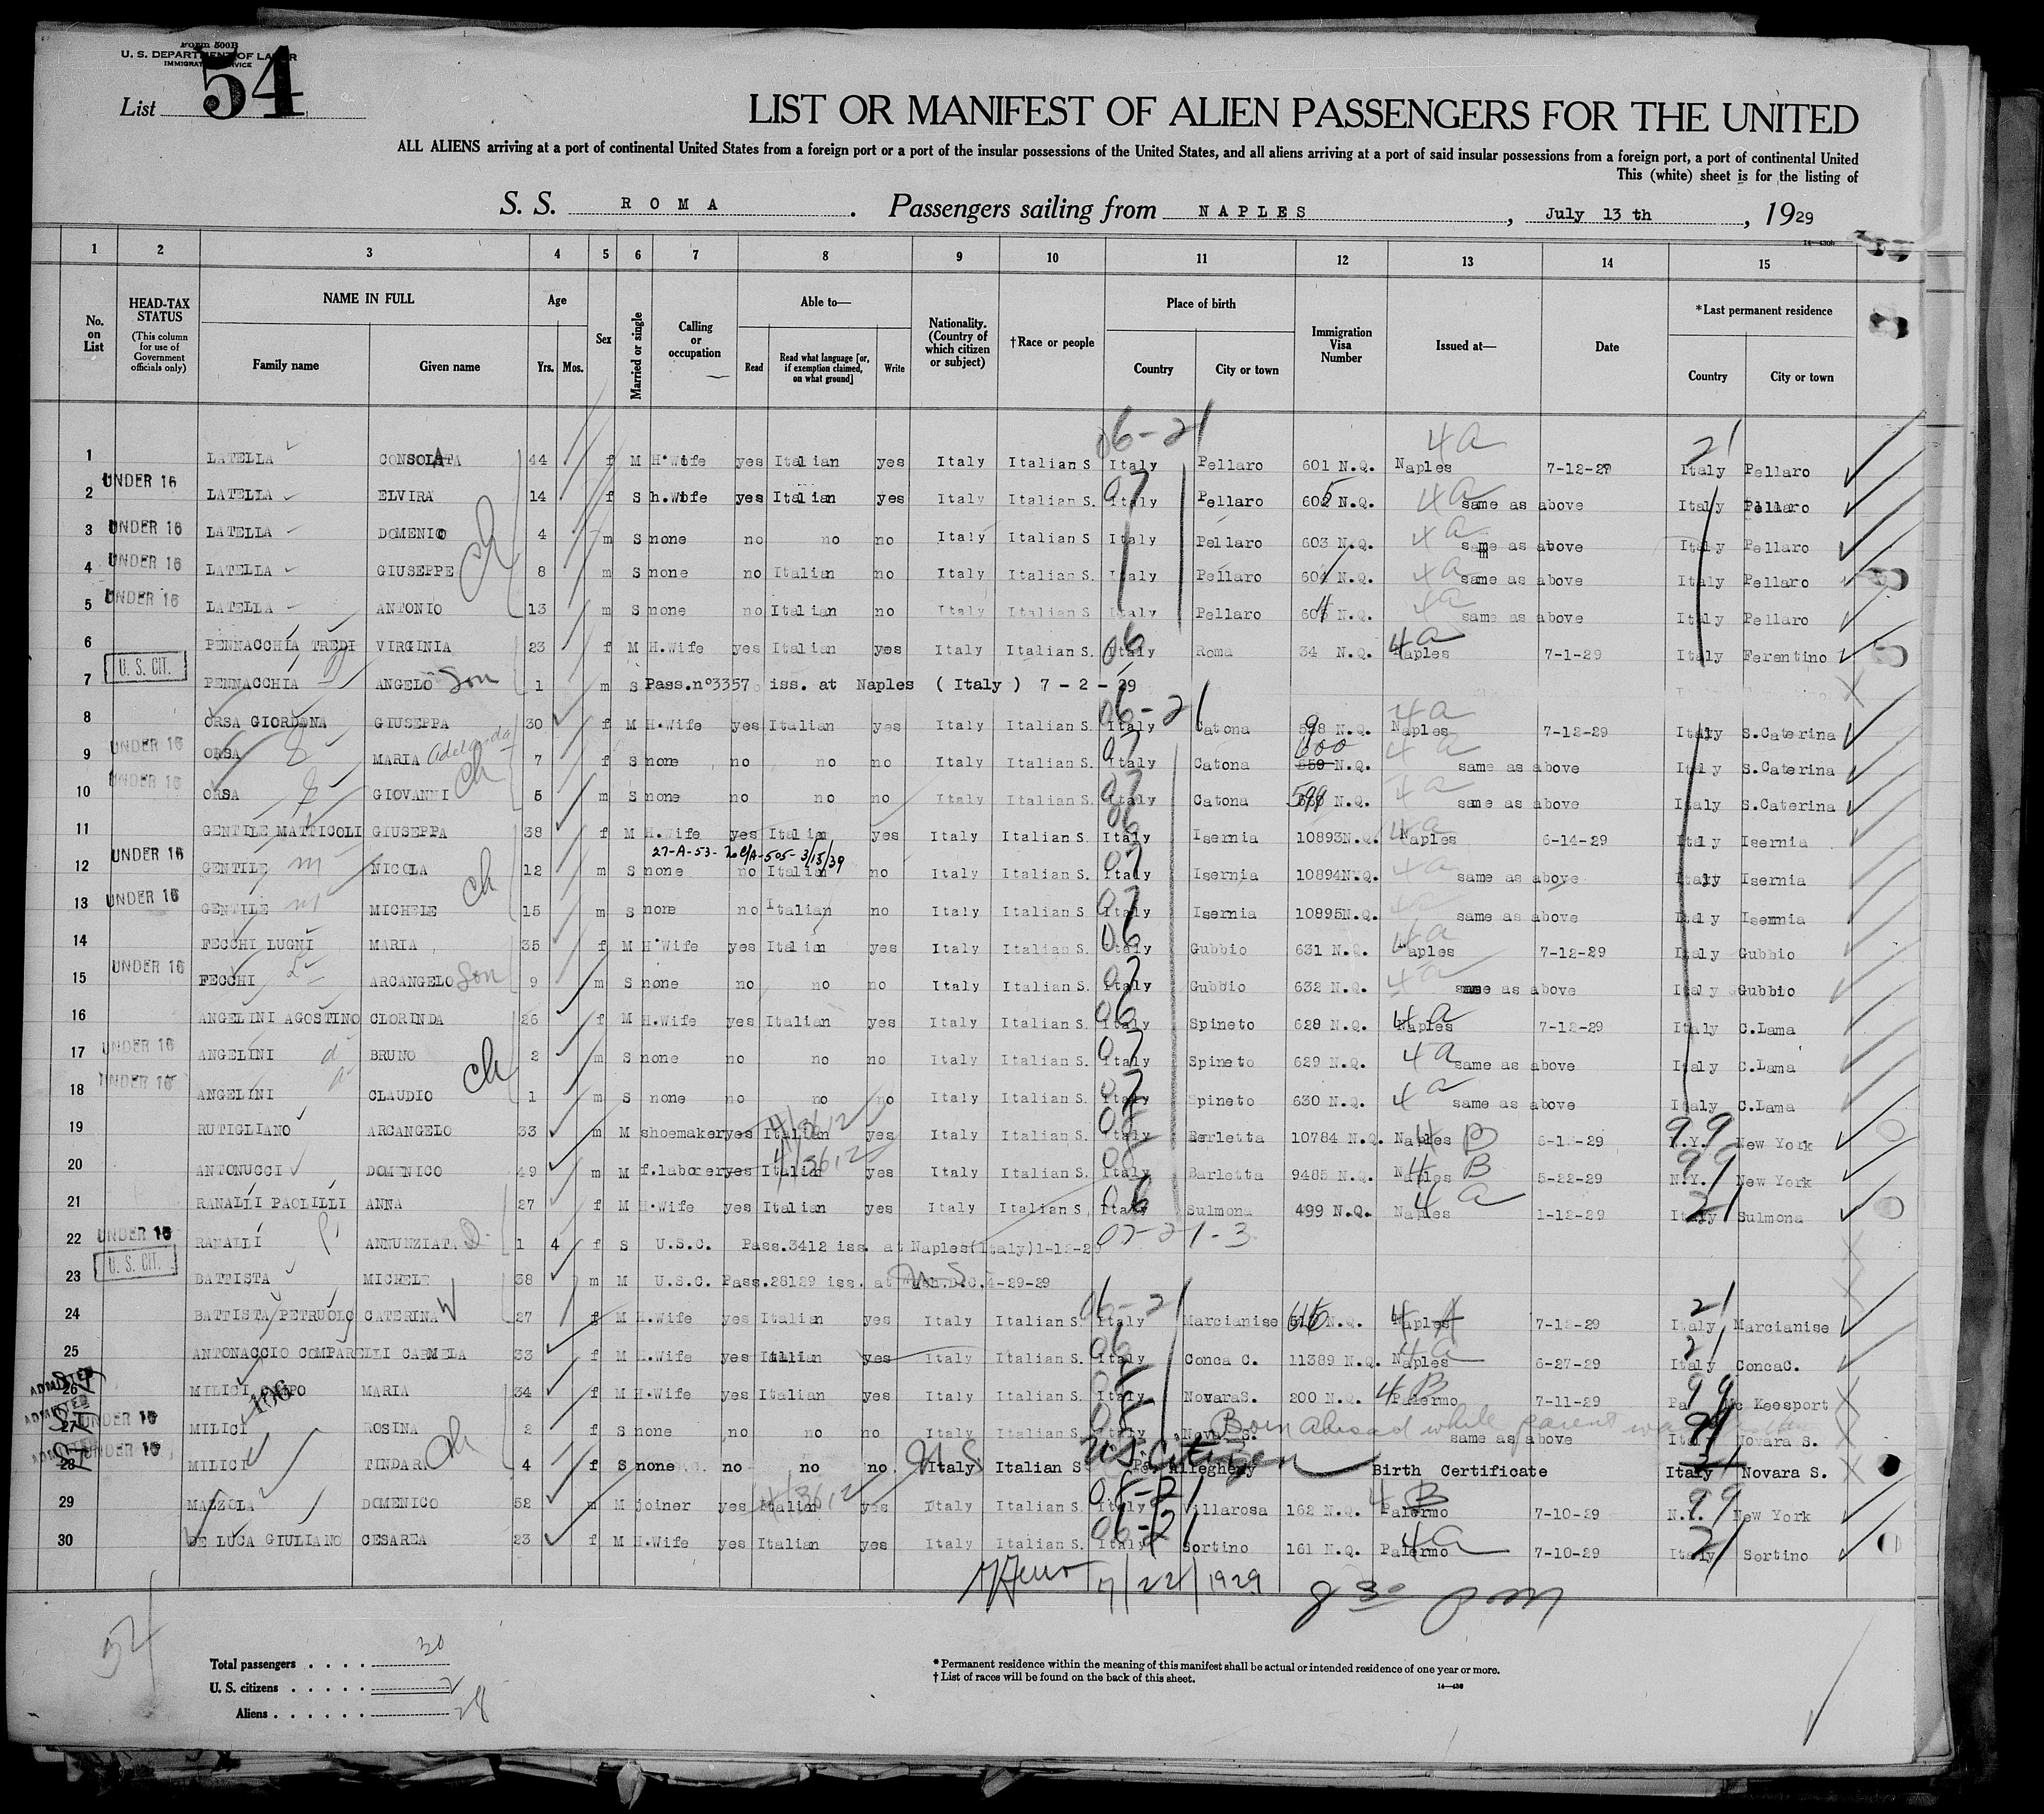 Form 500B
U. S. DEPARTMENT OF LABOR
IMMIGRATION SERVICE
List 54
LIST OR MANIFEST OF ALIEN PASSENGERS FOR THE UNITED
ALL ALIENS arriving at a port of continental United States from a foreign port or a port of the insular possessions of the United States, and all aliens arriving at a port of said insular possessions from a foreign port, a port of continental United
This (white) sheet is for the listing of
S. S. ROMA. Passengers sailing from NAPLES, July 13 th, 1929
14—430b
1 2 3 4 5 6 7 8 9 10 11 12 13 14 15
No. on List
HEAD-TAX STATUS (This column for use of Government officials only)
NAME IN FULL Family name Given name
Age Yrs. Mos.
Sex
Married or single
Calling or occupation
Able to— Read Read what language [or, if exemption claimed, on what ground] Write
Nationality. (Country of which citizen or subject)
†Race or people
Place of birth Country City or town
Immigration Visa Number
Issued at—
Date
*Last permanent residence Country City or town
06-21 4a 21
1 LATELLA CONSOLATA 44 f M H.Wife yes Italian yes Italy Italian S Italy Pellaro 601 N.Q. Naples 7-12-29 Italy Pellaro
2 UNDER 16 LATELLA ELVIRA 14 f S h.Wife yes Italian yes Italy Italian S. Italy Pellaro 605 N.Q. 4a same as above Italy Pellaro
3 UNDER 16 LATELLA DOMENICO 4 m S none no no no Italy Italian S Italy Pellaro 603 N.Q. 4a same as above Italy Pellaro
4 UNDER 16 LATELLA GIUSEPPE ch 8 m S none no Italian no Italy Italian S. Italy Pellaro 60 N.Q. 4a same as above Italy Pellaro
5 UNDER 16 LATELLA ANTONIO 13 m S none no Italian no Italy Italian S Italy Pellaro 604 N.Q. 4a same as above Italy Pellaro
6 PENNACCHIA TREDI VIRGINIA 23 f M H.Wife yes Italian yes Italy Italian S. 06 Italy Roma 34 N.Q. 4a Naples 7-1-29 Italy Ferentino
7 U. S. CIT. PENNACCHIA ANGELO Son 1 m S Pass.n°3357 iss. at Naples ( Italy ) 7 - 2 - 29
8 ORSA GIORDANA GIUSEPPA 30 f M H.Wife yes Italian yes Italy Italian S. 06-21 Italy Catona 598 N.Q. 4a Naples 7-12-29 Italy S.Caterina
9 UNDER 16 ORSA MARIA Adelanda 7 f S none no no no Italy Italian S. 07 Italy Catona 600 N.Q. 4a same as above Italy S.Caterina
10 UNDER 16 ORSA GIOVANNI ch 5 m S none no no no Italy Italian S. 07 Italy Catona 599 N.Q. 4a same as above Italy S.Caterina
11 GENTILE MATTICOLI GIUSEPPA 38 f M H.Wife yes Italian yes Italy Italian S. 06 Italy Isernia 10893N.Q. 4a Naples 6-14-29 Italy Isernia
3/15/39
12 UNDER 16 GENTILE m NICOLA ch 12 m S none no Italian no Italy Italian S. 07 Italy Isernia 10894N.Q. 4a same as above Italy Isernia
13 UNDER 16 GENTILE m MICHELE 15 m S none no Italian no Italy Italian S. 07 Italy Isernia 10895N.Q. 4a same as above Italy Isernia
14 FECCHI LUGNI MARIA 35 f M H.Wife yes Italian yes Italy Italian S. 06 Italy Gubbio 631 N.Q. 4a Naples 7-12-29 Italy Gubbio
15 UNDER 16 FECCHI L ARCANGELO Son 9 m S none no no no Italy Italian S. 07 Italy Gubbio 632 N.Q. 4a same as above Italy Gubbio
16 ANGELINI AGOSTINO CLORINDA 26 f M H.Wife yes Italian yes Italy Italian S. 06 Italy Spineto 628 N.Q. 4a Naples 7-12-29 Italy C.Lama
17 UNDER 16 ANGELINI a BRUNO ch 2 m S none no no no Italy Italian S. 07 Italy Spineto 629 N.Q. 4a same as above Italy C.Lama
18 UNDER 16 ANGELINI a CLAUDIO 1 m S none no no no Italy Italian S. 07 Italy Spineto 630 N.Q. 4a same as above Italy C.Lama
19 RUTIGLIANO ARCANGELO 33 m M shoemaker yes Italian yes Italy Italian S. Italy Barletta 10784 N.Q. Naples 4B 6-12-29 N.Y. New York 99
20 ANTONUCCI DOMENICO 49 m M f.laborer yes Italian yes Italy Italian S. Italy Barletta 9485 N.Q. Naples 4B 5-22-29 N.Y. New York
21 RANALLI PAOLILLI ANNA 27 f M H.Wife yes Italian yes Italy Italian S. 06 Italy Sulmona 499 N.Q. Naples 4a 1-12-29 Italy Sulmona 21
22 UNDER 16 RANALLI P ANNUNZIATA D. 1 4 f S U.S.C. Pass.3412 iss. at Naples(Italy)1-12-29 07-21-3
U. S. CIT.
23 BATTISTA MICHELE 38 m M U.S.C. Pass.28129 iss. at Wash.D.C. 4-29-29
24 BATTISTA PETRUOLO CATERINA W 27 f M H.Wife yes Italian yes Italy Italian S. 06-21 Italy Marcianise N.Q. Naples 4A 7-12-29 Italy Marcianise 21
25 ANTONACCIO COMPARELLI CARMELA 33 f M H.Wife yes Italian yes Italy Italian S. 06 Italy Conca C. 11389 N.Q. 4a Naples 6-27-29 Italy ConcaC. 21
26 ADMITTED MILICI CAMPO 106 MARIA 34 f M H.Wife yes Italian yes Italy Italian S. Italy NovaraS. 200 N.Q. 4B Palermo 7-11-29 Pa Mc Keesport 99
27 ADMITTED UNDER 16 MILICI ROSINA 2 f S none no no no Italy Italian S. Italy Novara S. Born abroad while parent same as above Italy Novara S.
28 ADMITTED UNDER 16 MILICI TINDARA ch 4 f S none no no no U S Italy Italian S U.S. Citizen Pa. Allegheny Birth Certificate Italy Novara S.
29 MAZZOLA DOMENICO 52 m M joiner yes Italian yes Italy Italian S. 08-21 Italy Villarosa 162 N.Q. 4B Palermo 7-10-29 N.Y. New York 99
30 DE LUCA GIULIANO CESAREA 23 f M H.Wife yes Italian yes Italy Italian S. 06-21 Italy Sortino 161 N.Q. 4a Palermo 7-10-29 Italy Sortino 21
7/22/1929 8 30 pm
54
Total passengers . . . . 30
U. S. citizens . . . . . 2
Aliens . . . . . . 28
* Permanent residence within the meaning of this manifest shall be actual or intended residence of one year or more.
† List of races will be found on the back of this sheet.
14—430